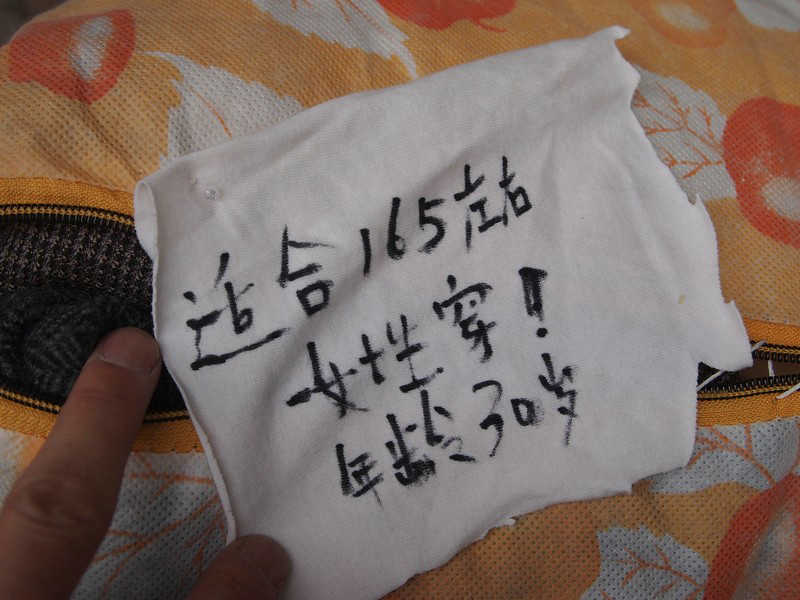 适合165左右
女性穿!
年龄30岁